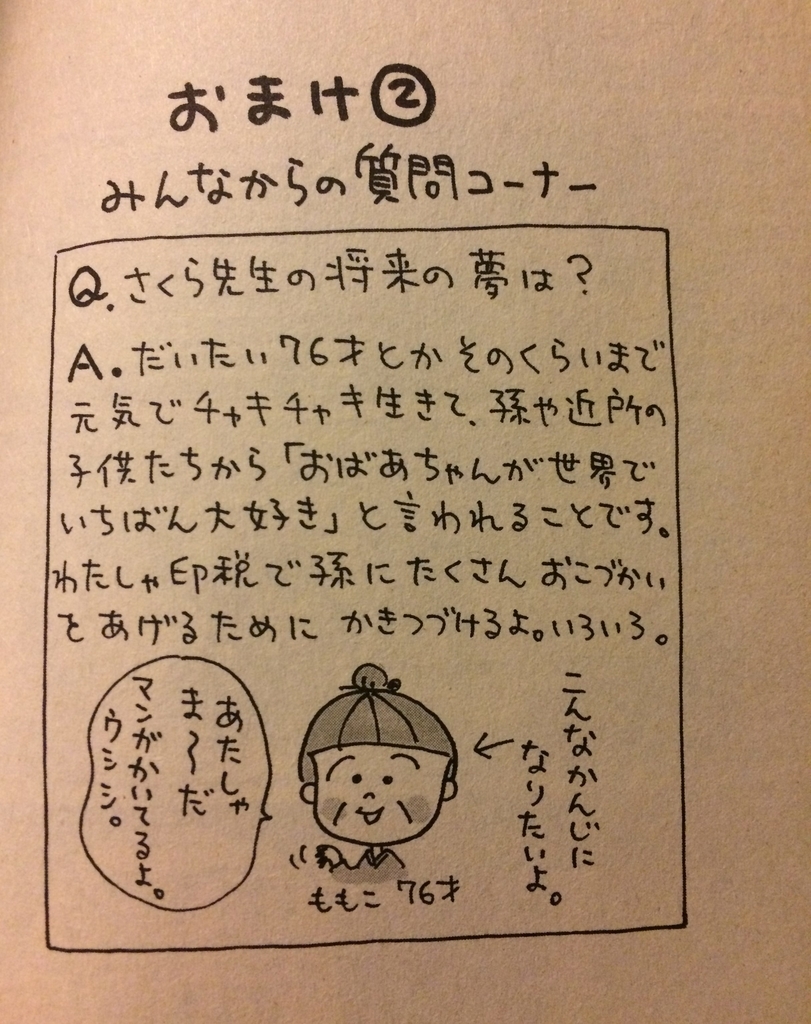 おまけ②
みんなからの質問コーナー
Q.さくら先生の将来の夢は?
A.だいたい76才とかそのくらいまで
元気でチャキチャキ生きて、孫や近所の
子供たちから「おばあちゃんが世界で
いちばん大好き」と言われることです。
わたしゃ印税で孫にたくさんおこづかい
をあげるためにかきつづけるよ。いろいろ。
こんなかんじに
なりたいよ。
あたしゃ
ま〜だ
マンガかいてるよ。
ウシシ。
ももこ 76才